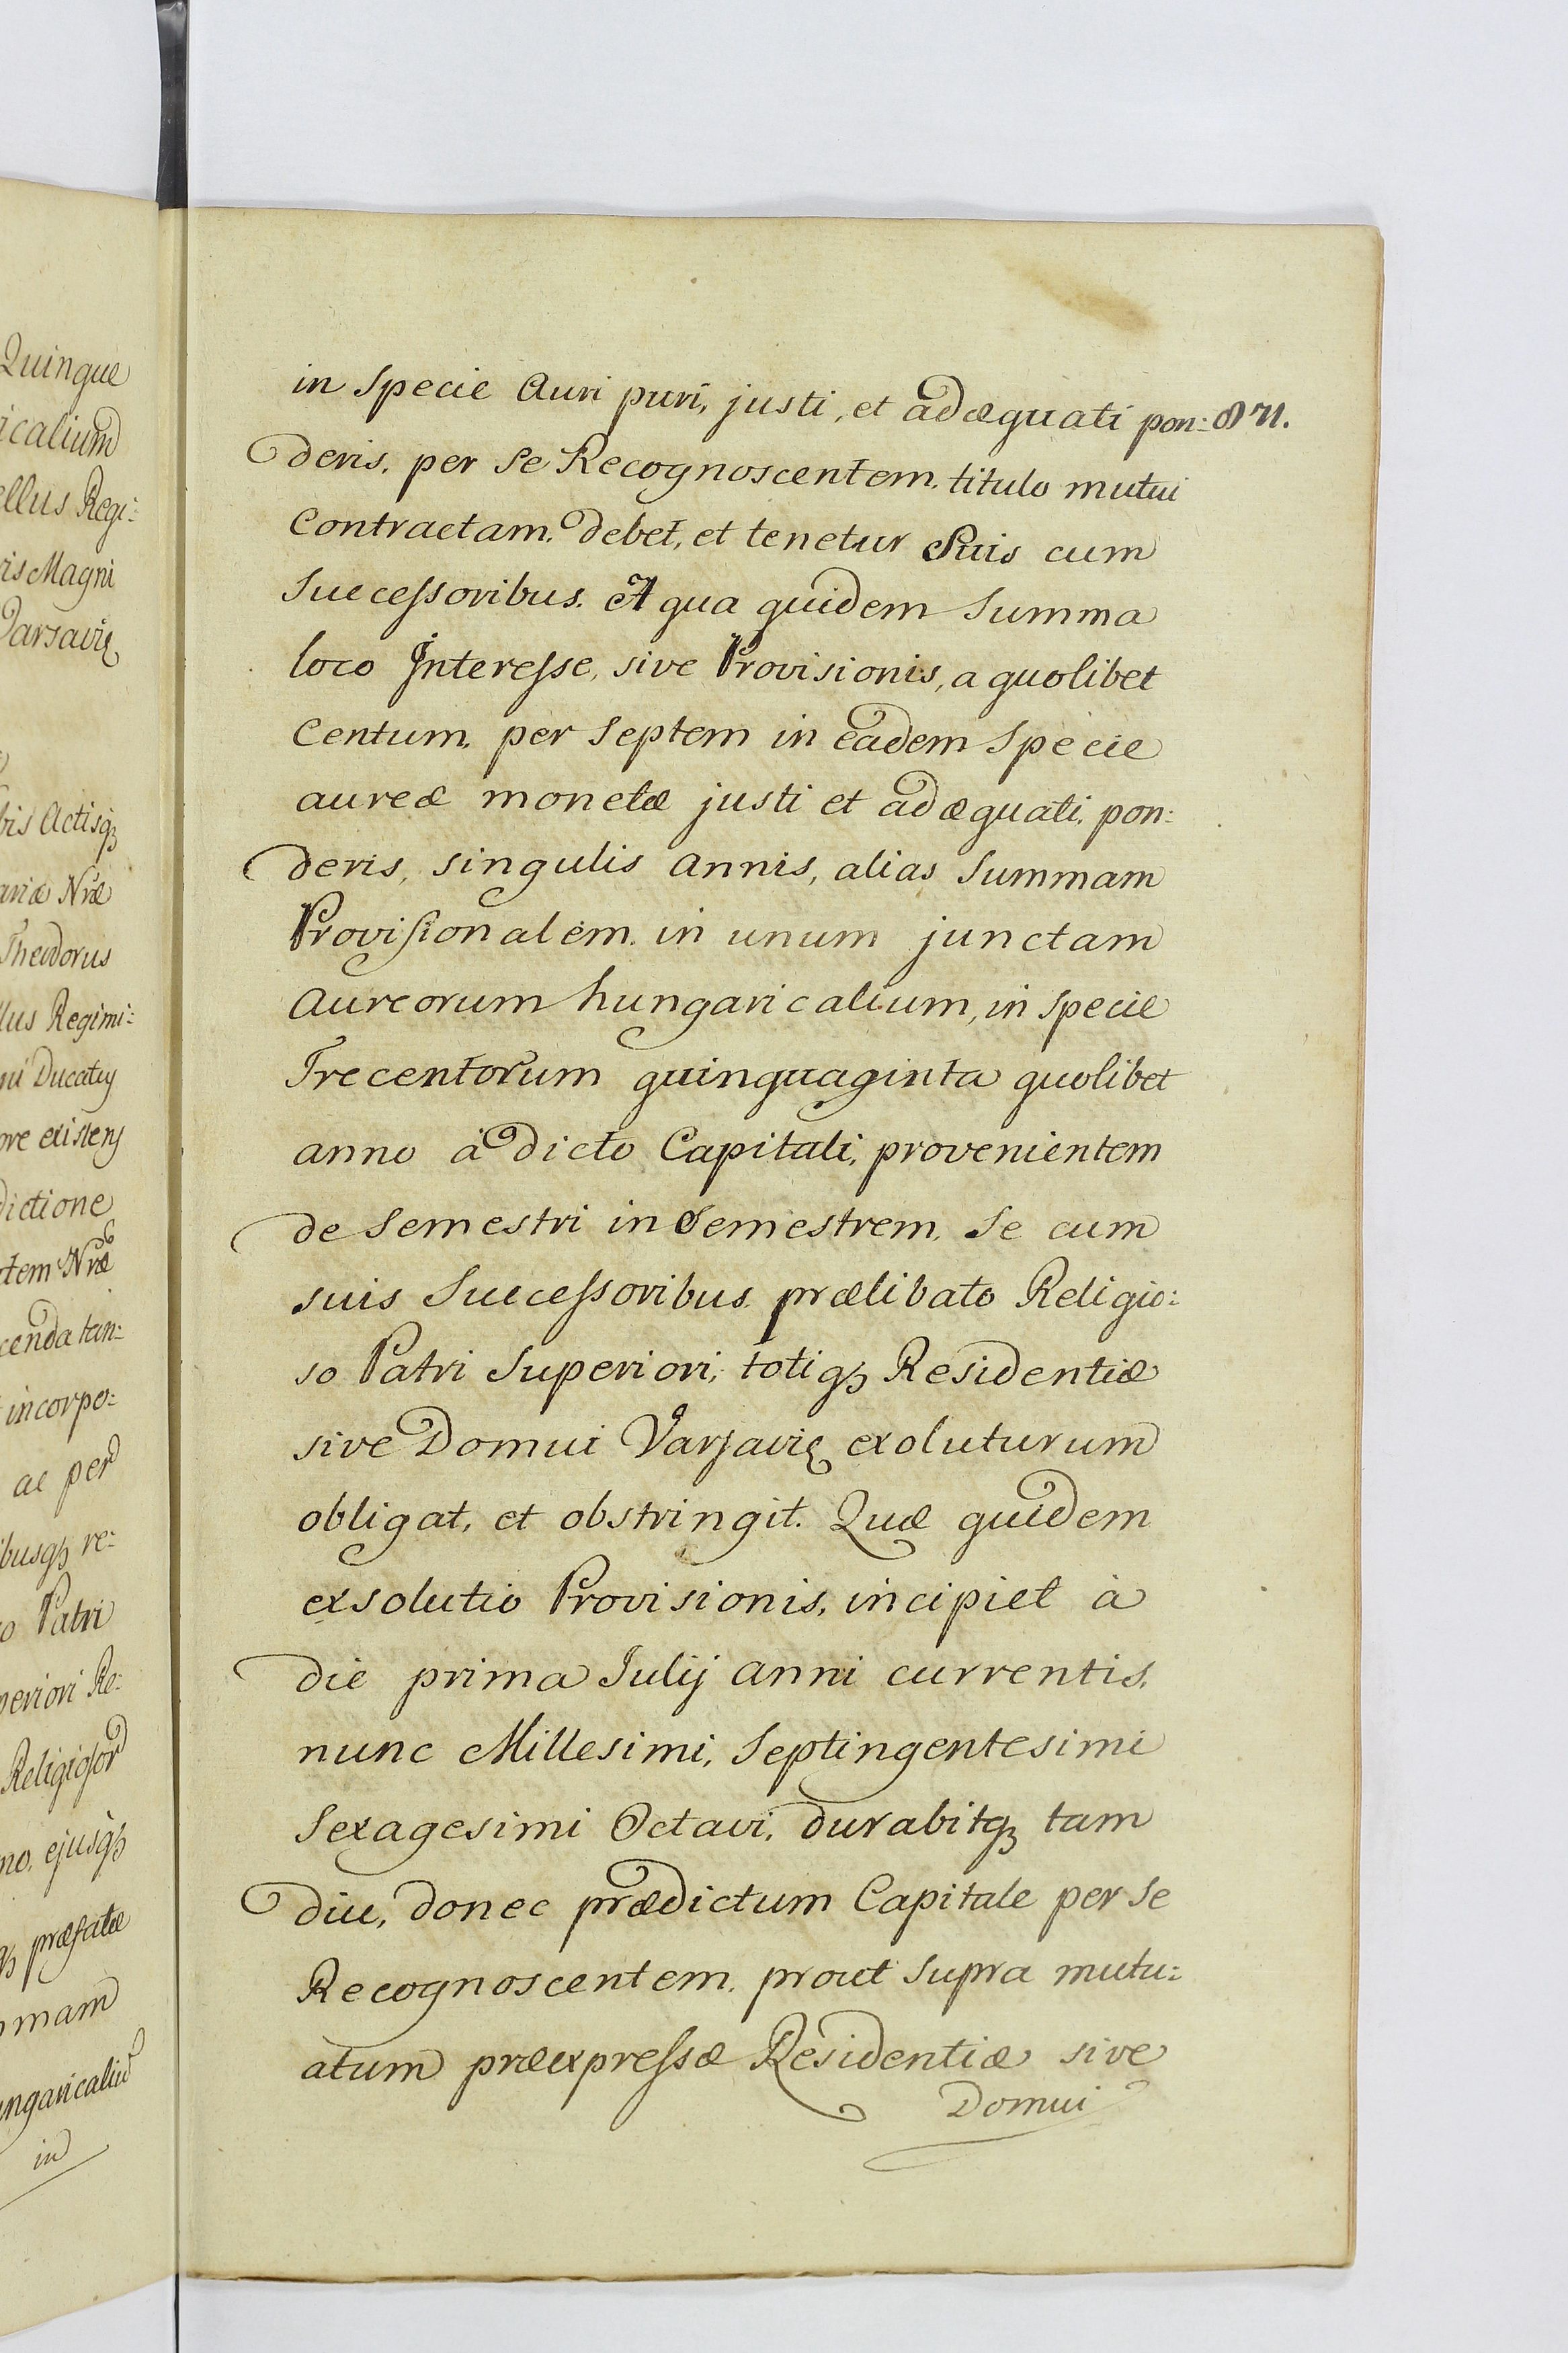 Quingue
icalium
ellus Regi:
ris Magni
Varsavię
bis Actisq3
Nræ
Theodorus
llus Regimi:
ni Ducatus
ore existens
dictione
tem Nræ
cenda tan:
incorpo:
ac per
ibusq3 re:
o Patri
periori Re:
Religiosor
no, ejusq3
q3 præfatæ
mmam
ungaricaliū
in
in Specie Auri puri, justi, et adæquati pon: 871.
deris, per se Recognoscentem, titulo mutui
Contractam, debet, et tenetur Suis cum
Successoribus. A qua quidem Summa
loco Interesse, sive Provisionis, a quolibet
Centum, per Septem in eadem Specie
aureæ monetæ justi et adæquati, pon:
deris, singulis annis, alias Summam
Provisionalem, in unum junctam
Aureorum hungaricalium, in specie
Trecentorum quinquaginta quolibet
anno à dicto Capitali, provenientem
de Semestri in Semestrem, Se cum
suis Successoribus, prælibato Religio:
so Patri Superiori, totiq3 Residentiæ
sive Domui Varsavię exoluturum
obligat, et obstringit. Quæ quidem
exsolutio Provisionis, incipiet à
die prima Iulij anni currentis,
nunc Millesimi, Septingentesimi
Sexagesimi Octavi, durabitq3 tam
diu, donec prædictum Capitale per se
Recognoscentem, prout supra mutu:
atum præexpressæ Residentiæ sive
Domui